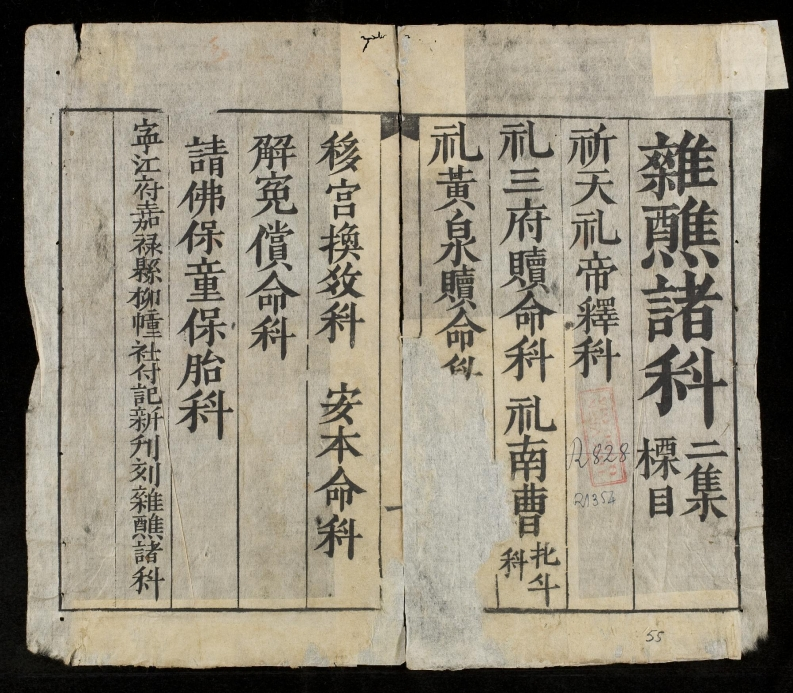 雜醮諸科二集標目
祈天礼帝釋科
礼三府贖命科 礼南曹北斗科
礼黃泉贖命科
移宮換敎科 安本命科
解寃償命科
請佛保童保胎科
寧江府嘉祿縣柳幢社付記新刋刻雜醮諸科
R828
R1354
55